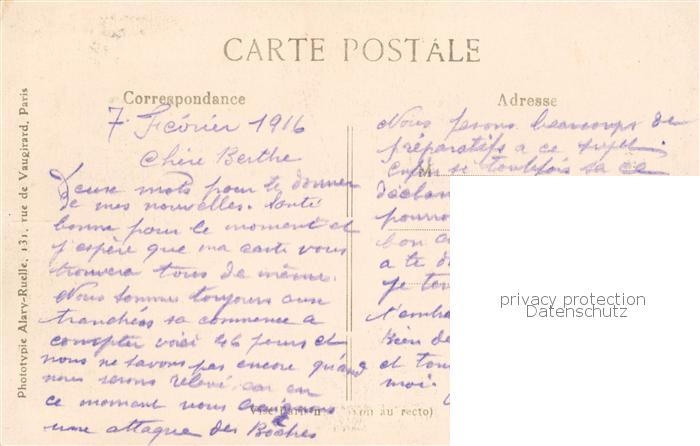 CARTE POSTALE
Correspondance
Adresse
Phototypie Alary-Ruelle, 131, rue de Vaugirard, Paris
7 Février 1916
Chère Berthe
Deux mots pour te donner
de mes nouvelles. Santé
bonne pour le moment et
j'espère que ma carte vous
trouvera tous de même.
Nous sommes toujours aux
tranchées sa commence a
compter voici 46 jours et
nous ne savons pas encore quand
nous serons relevé, car en
ce moment nous craignons
une attaque des Boches
Nous ferons beaucoups de
préparatifs a ce sujet
enfin si toutefois sa ce
déclan
pourro
bon
a te d
Je
t'emb
Bien de
et tou
moi.
au recto)
privacy protection
Datenschutz